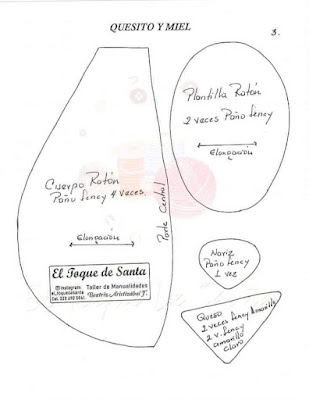 QUESITO Y MIEL
3.
Plantilla Ratón
2 veces Paño Lency
Elongación
Cuerpo Ratón
Paño Lency 4 veces
Parte Central
Elongación
El Toque de Santa
Instagram
Taller de Manualidades
Nariz
Paño Lency
1 vez
Queso
2 veces Lency Amarillo
2 v. Lency
amarillo
claro